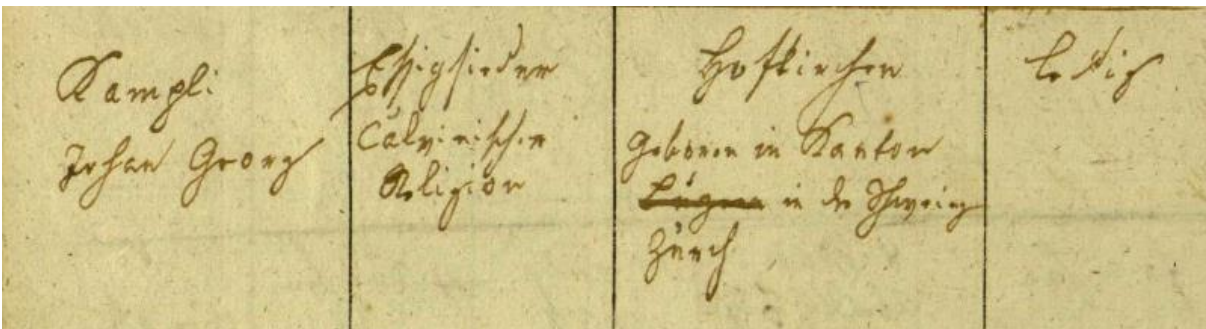 Kampli
Johan Georg
Essigsieder
Calvinischer
Religion
Hofkirchen
geboren in Kanton
in der Schweiz
Zürch
ledig